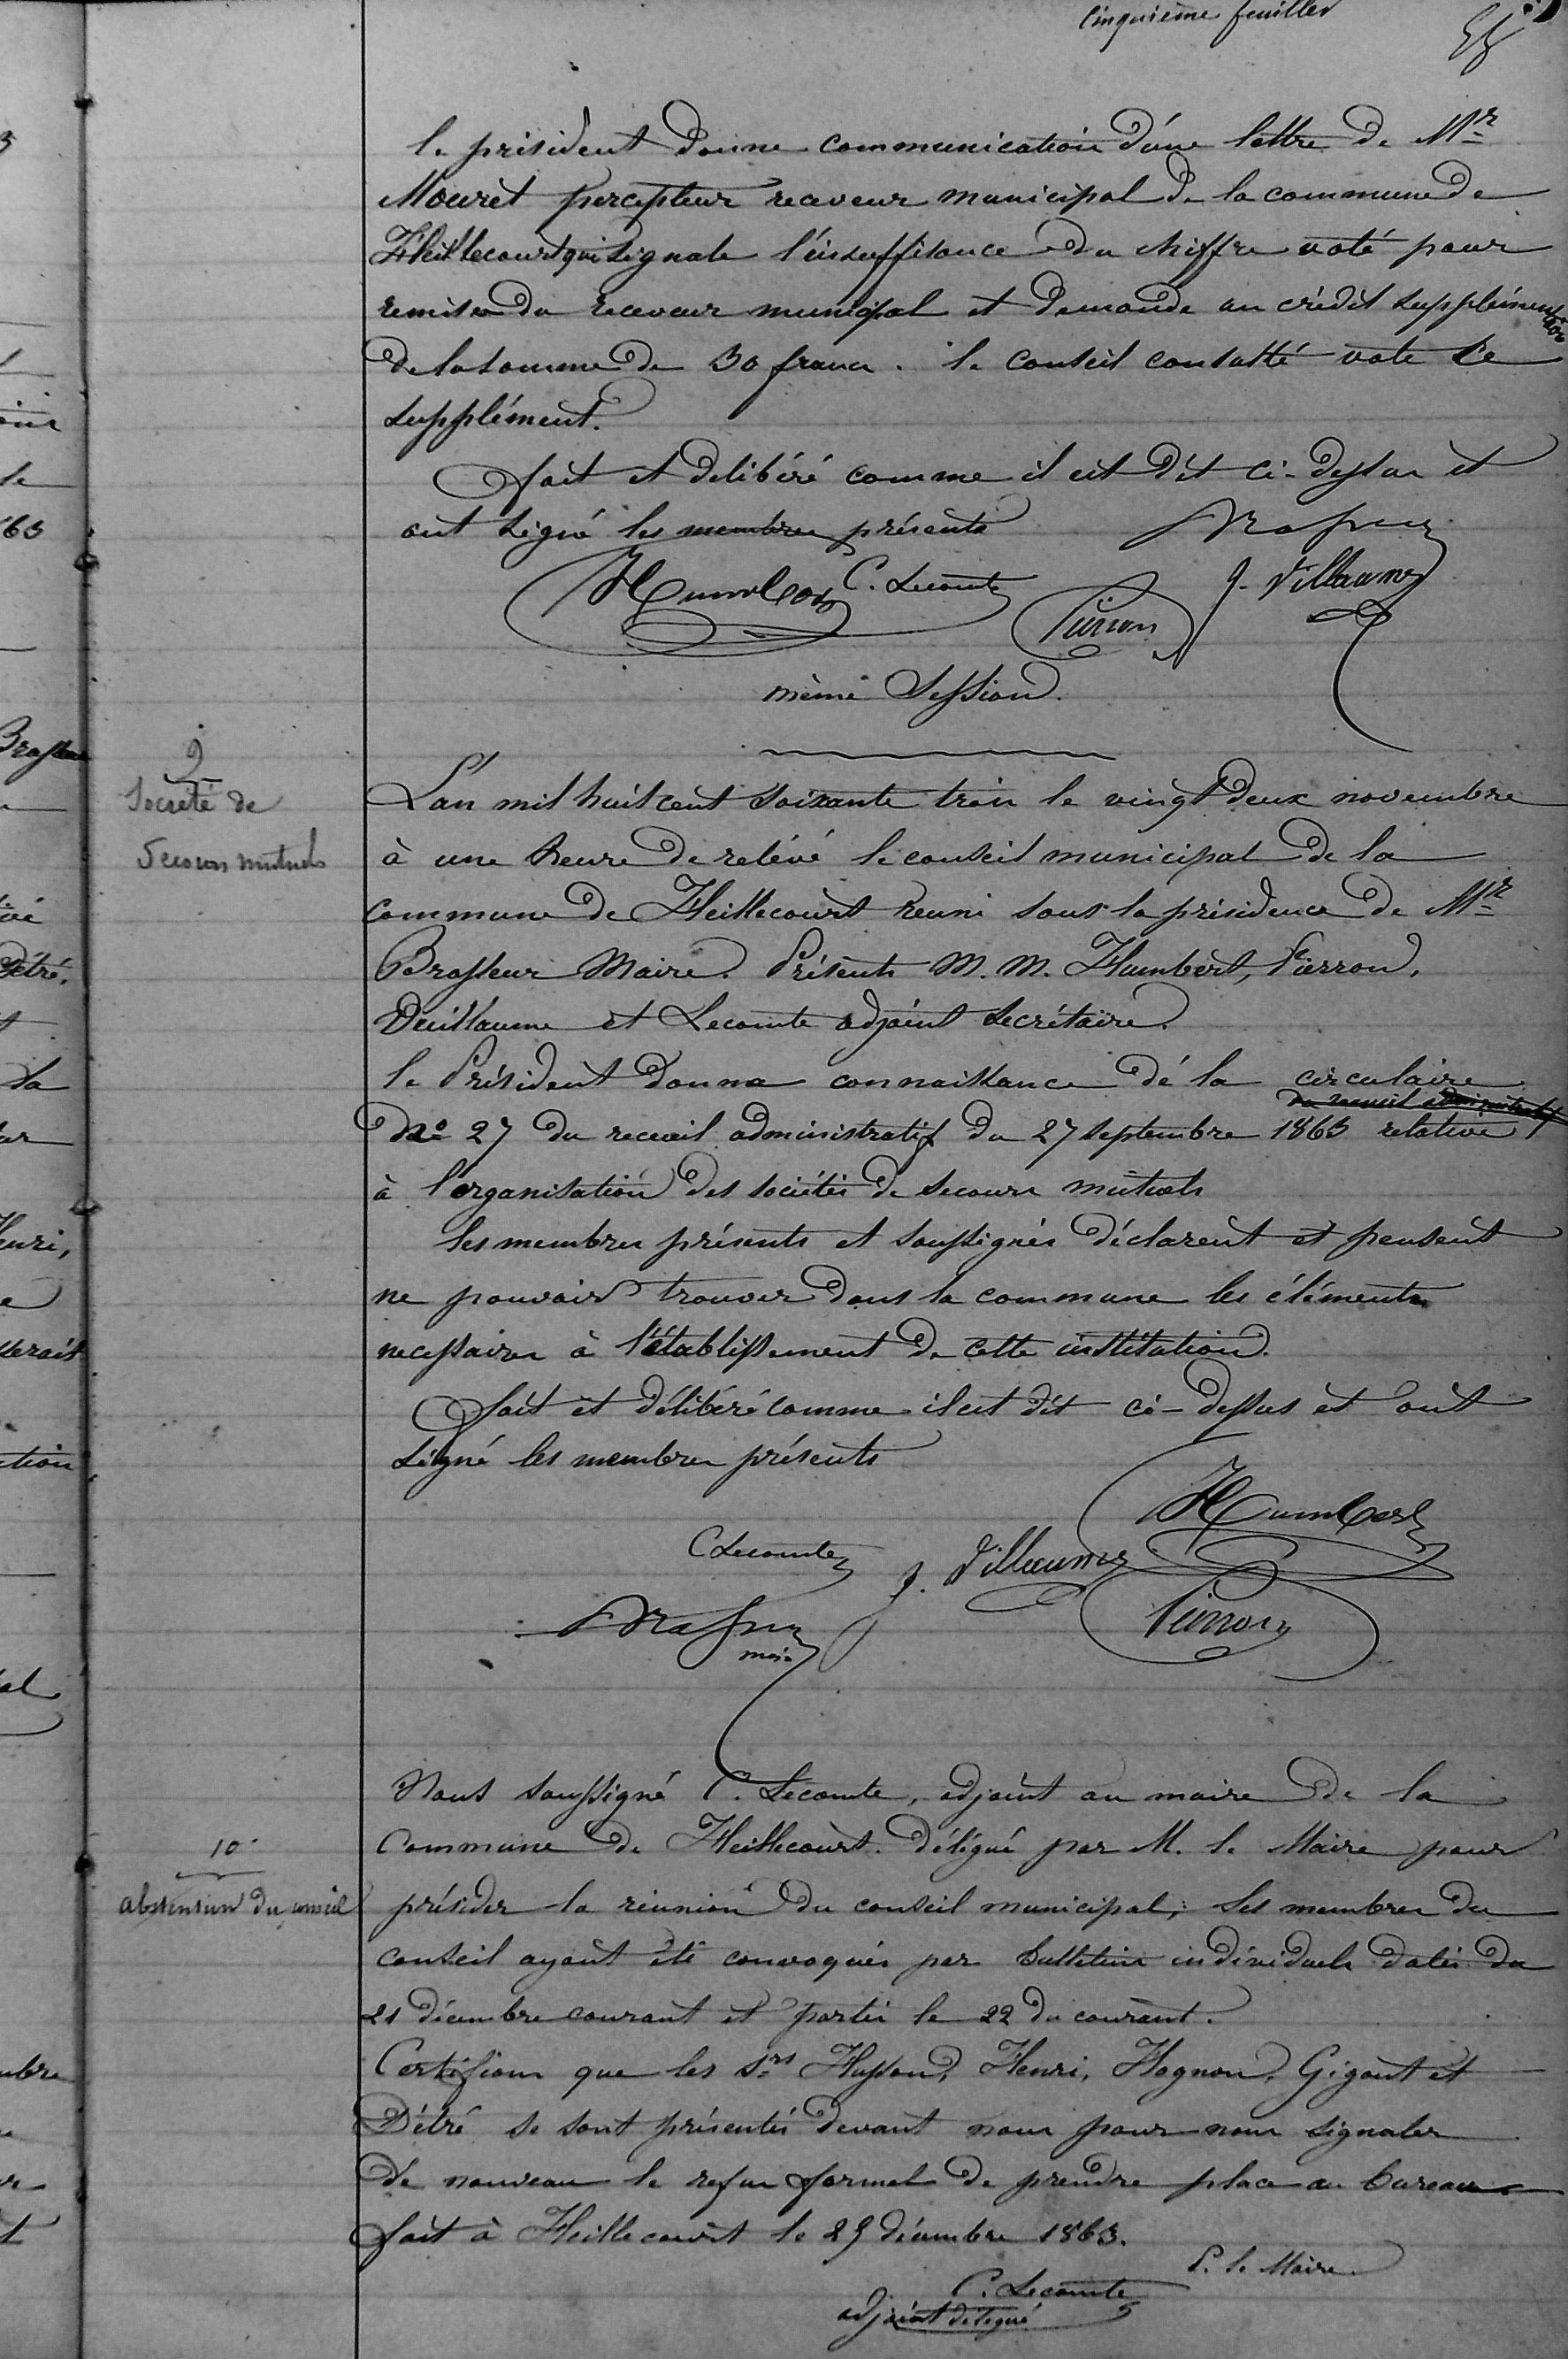 Cinquième feuillet
le président donne communication d'une lettre de Mr
Mouret percepteur receveur municipal de la commune de
Heillecourt qui signale l'insuffisance du chiffre voté pour
remises du receveur municipal et demande un crédit supplémentaire
de la somme de 30 francs. le conseil consulté vote ce
supplément.
fait et delibéré comme il est dit ci-dessus et
ont signé les membres présents
Brasseur
Humbert C. Lecomte Pierron J. Villaume
même Session.
9
Société de
Secours mutuels
L'an mil huit cent soixante trois le vingt deux novembre
à une heure de relévé le conseil municipal de la
commune de Heillecourt réuni sous la présidence de Mr
Brasseur Maire. Présents M. M. Humbert, Pierron,
Vuillaume et Lecomte adjoint secrétaire.
le Président donne connaissance de la circulaire
du recueil administratif
No 27 du recueil administratif du 27 septembre 1863 relative
à l'organisation des sociétés de secours mutuels
les membres présents et soussignés déclarent et pensent
ne pouvoir trouver dans la commune les éléments
necessaires à l'établissement de cette institution.
fait et délibéré comme il est dit ci-dessus et ont
signé les membres présents
Humbert
C Lecomte J. Villaume
Brasseur Pierron
maire
Nous soussigné C. Lecomte, adjoint au maire de la
10
Commune de Heillecourt. délégué par M. le Maire pour
abstension du conseil
présider la réunion du conseil municipal, les membres du
conseil ayant été convoqués par bulletins individuels datés du
21 décembre courant et portés le 22 du courant.
Certifions que les Srs Husson, Henri, Hognon, Gigout et
Détré se sont présentés devant nous pour nous signaler
de nouveau le refus formel de prendre place au bureau
fait à Heillecourt le 29 décembre 1863.
P. le Maire
C. Lecomte
adjoint délégué